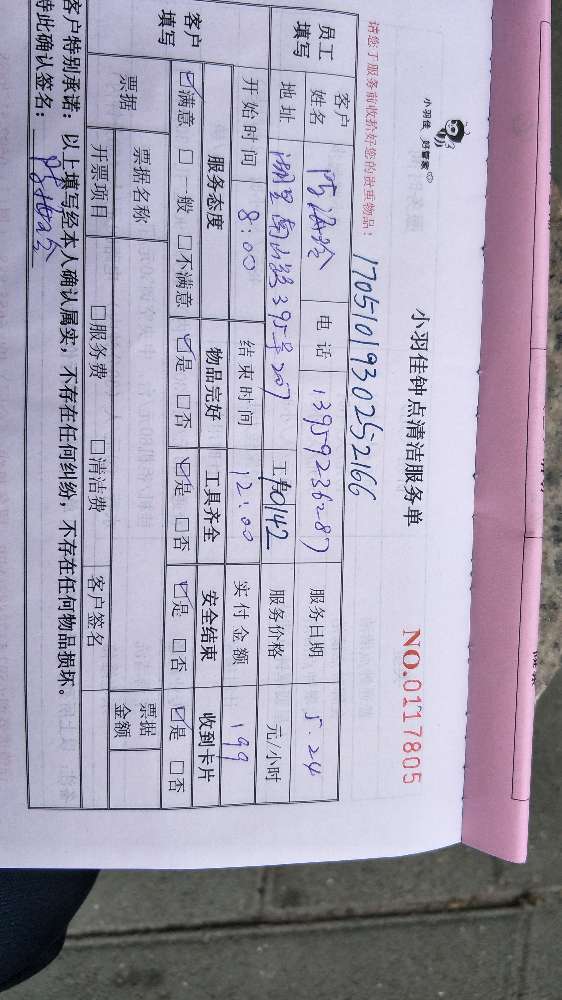 小羽佳 好管家
小羽佳钟点清洁服务单
NO.0117805
请您于服务前收拾好您的贵重物品!
1705101930252166
员工填写 客户姓名 电话 13959236287 服务日期 5.24
地址 湖里南山路395号207 工号 P0142 服务价格 元/小时
开始时间 8:00 结束时间 12:00 实付金额 199
客户填写 服务态度 物品完好 工具齐全 安全结束 收到卡片
☑满意 □一般 □不满意 ☑是 □否 ☑是 □否 ☑是 □否 ☑是 □否
票据 票据名称 票据金额
开票项目 □服务费 □清洁费 客户签名
客户特别承诺:以上填写经本人确认属实,不存在任何纠纷,不存在任何物品损坏。
特此确认签名: